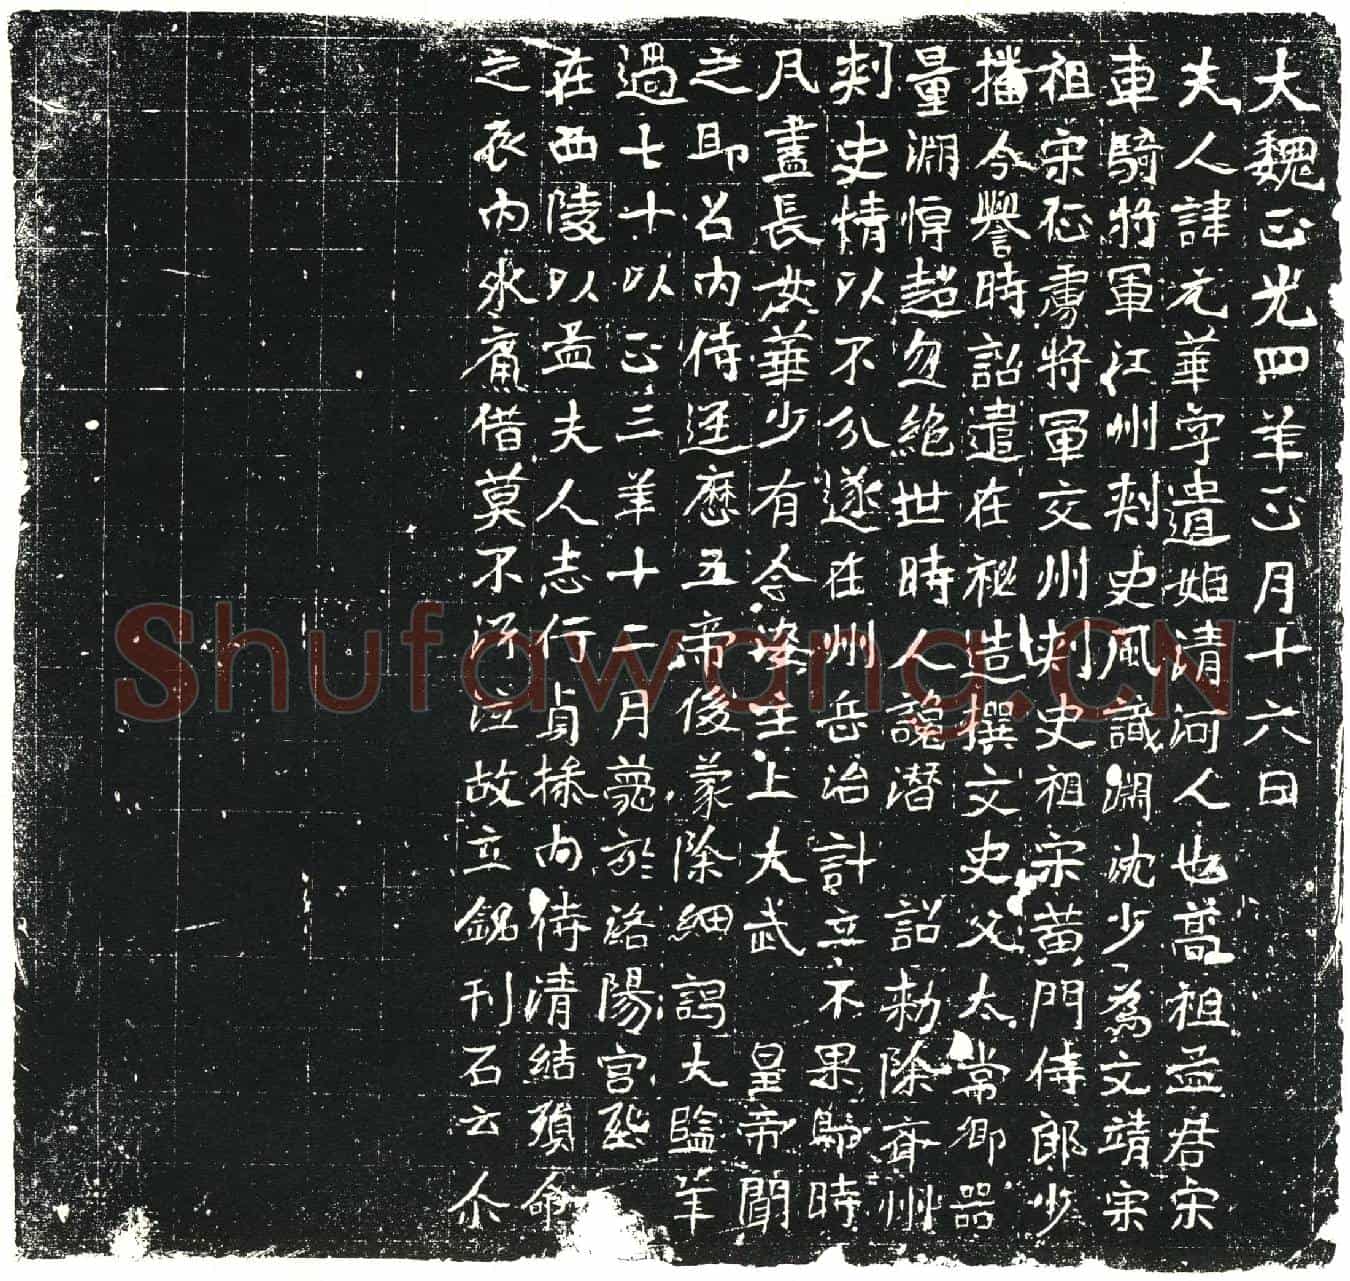 大魏正光四年正月十六日
夫人諱元華字遺姬清河人也高祖益君宋
車騎將軍江州刺史風識淵沈少為文靖宗
祖宋征虜將軍交州刺史祖宋黃門侍郎少
播令譽時詔遣在祕造撰文史父太常卿器
量淵惇超忽絕世時人讒潛 詔勑除齊州
刺史情以不分遂在州岳治計立不果歸時
凡盡長女華少有令姿主上大武 皇帝聞
之即召內侍逕歷五帝後蒙除細謁大監年
過七十以正三年十二月薨於洛陽宮
在西陵以孟夫人志行貞操內侍清結殞命
之衰內外痛借莫不浮泣故立銘刊石云尒
Shufawang.CN